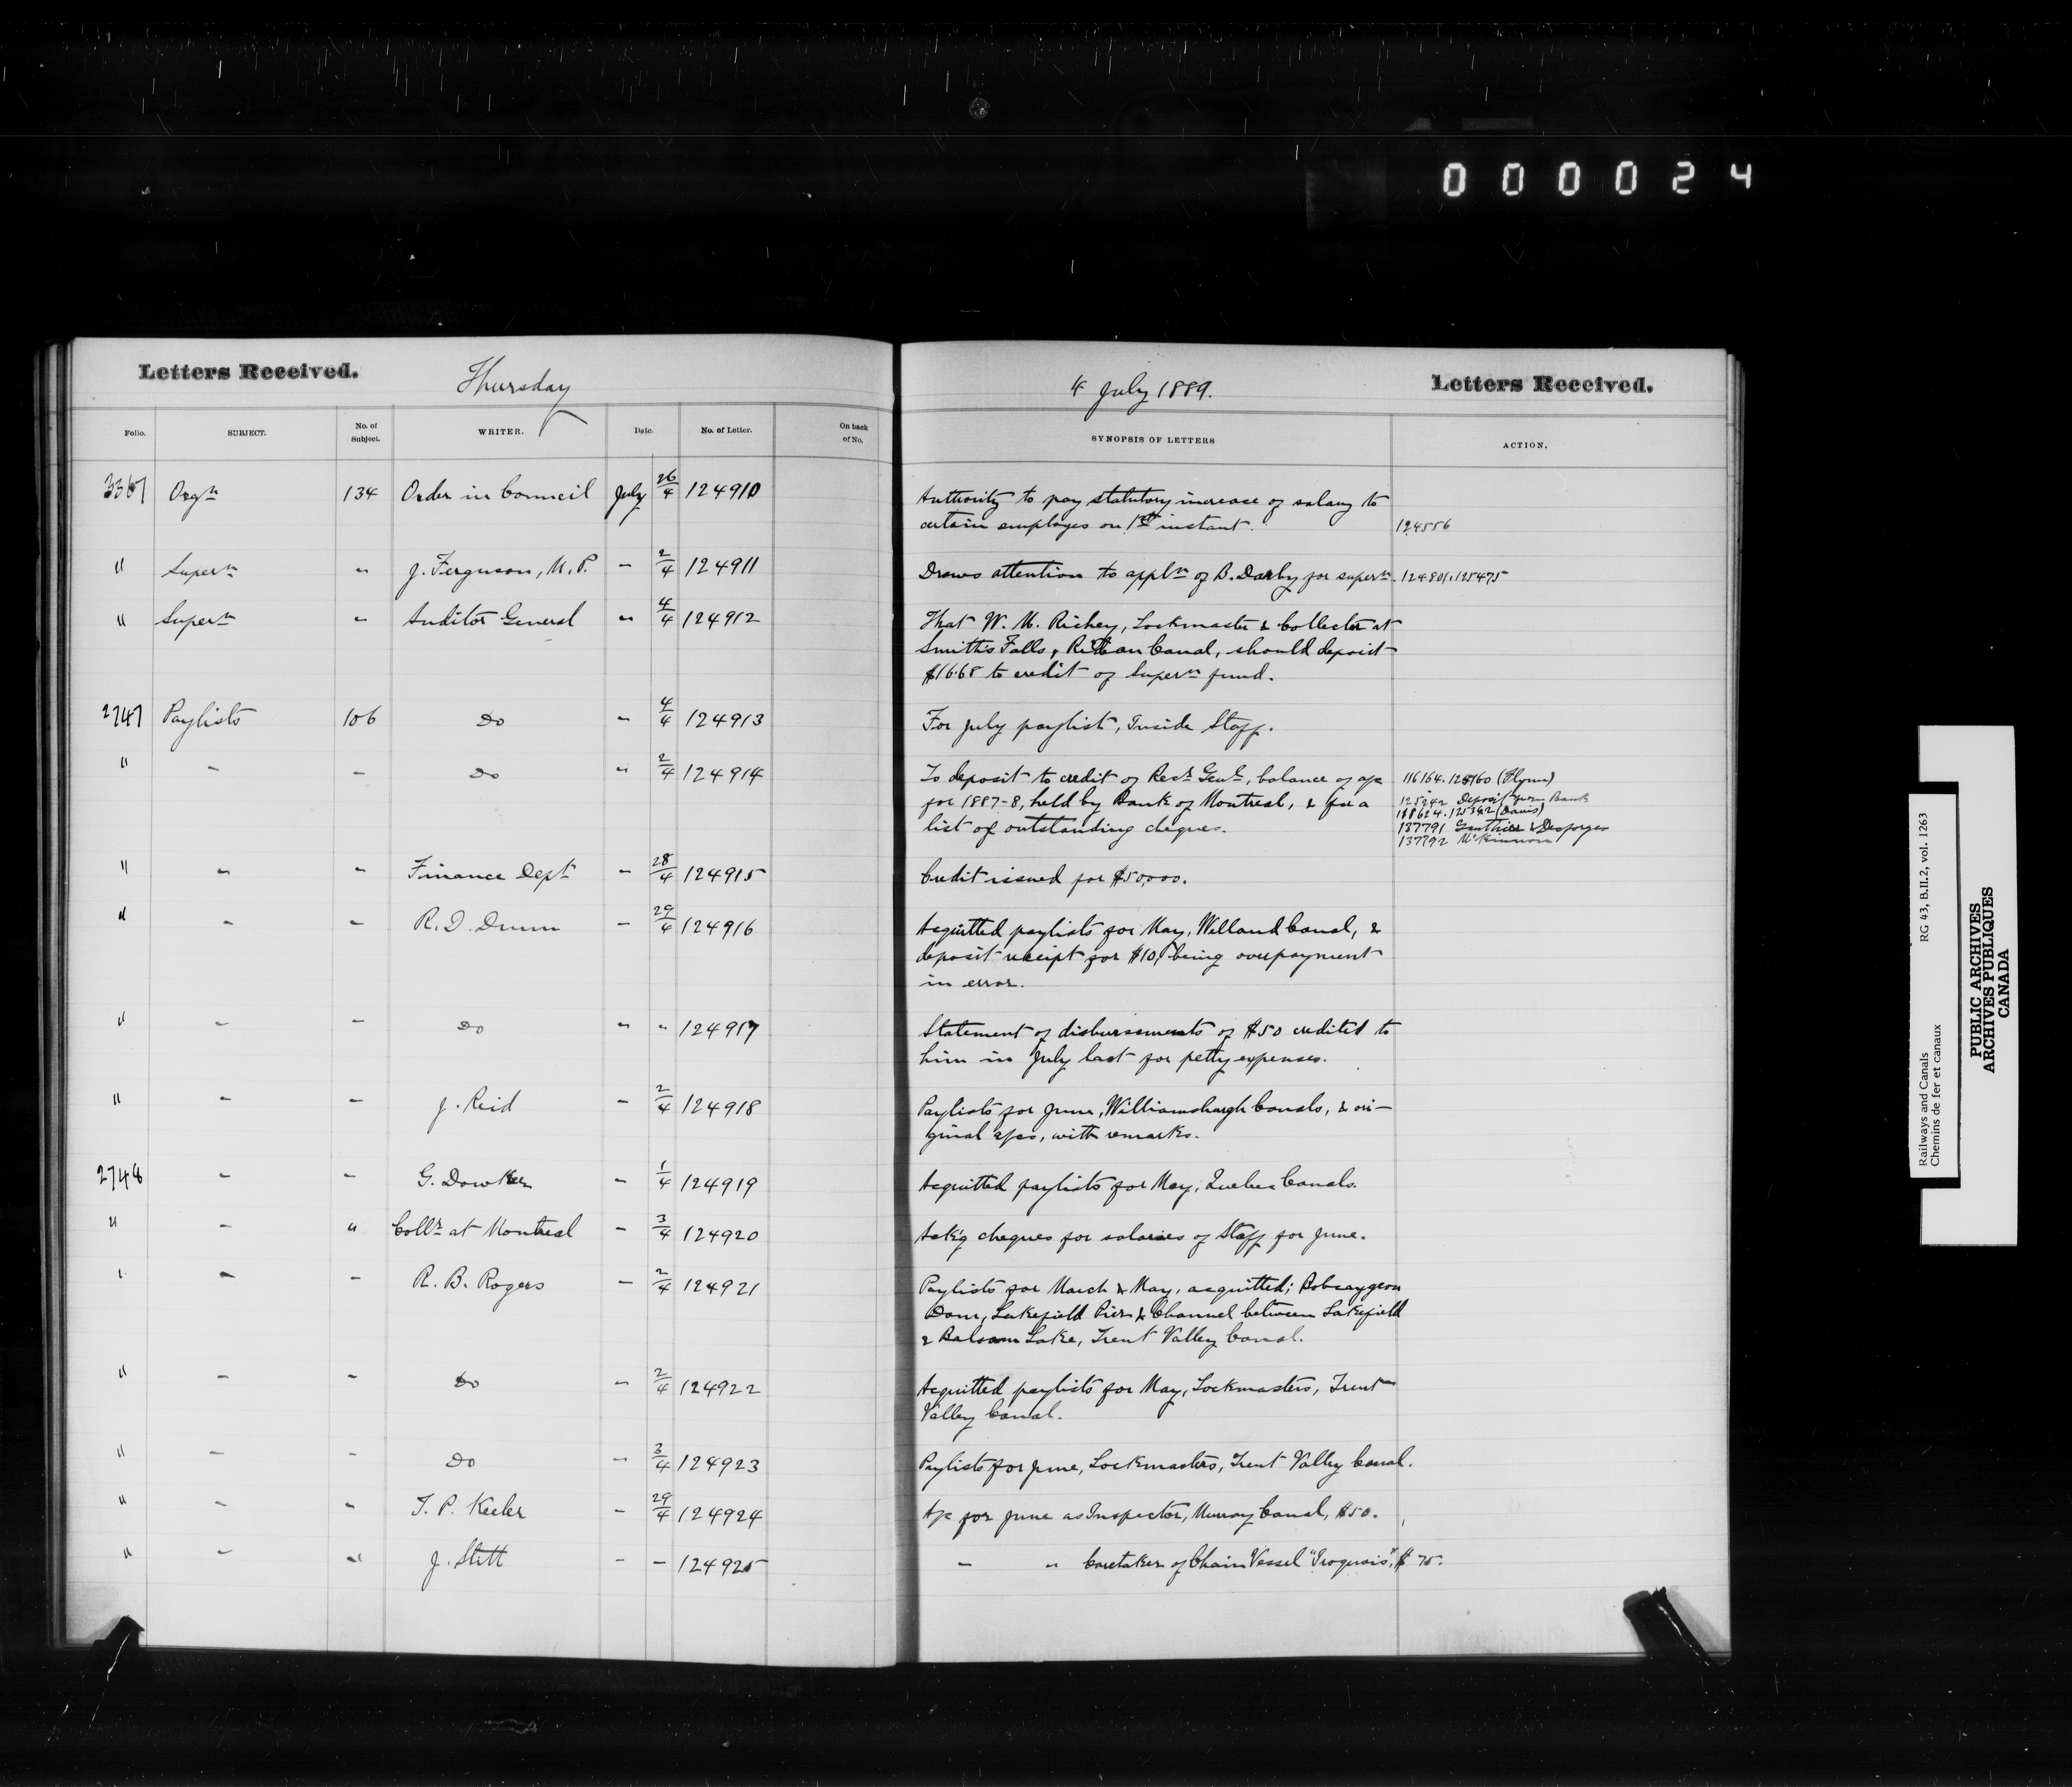 0 0 0 0 2 4
Letters Received. Thursday 4 July 1889. Letters Received.
Folio. SUBJECT. No. of Subject. WRITER. Date. No. of Letter. On back of No. SYNOPSIS OF LETTERS ACTION.
3367 Orgn 134 Order in Council July 26/4 124910 Authority to pay statutory increase of salary to
certain employes on 1st instant. 124556
" Supern " J. Ferguson, M.P. - 2/4 124911 Draws attention to appln of B. Darby for supern. 124801.125475
" Supern " Auditor General " 4/4 124912 That W. M. Richey, Lockmaster & Collector at
Smith's Falls, Rideau Canal, should deposit
$16.68 to credit of Supern fund.
2747 Paylists 106 Do " 4/4 124913 For July paylist, Inside Staff.
" - - Do " 2/4 124914 To deposit to credit of Recr Genl, balance of a/c 116164. (Flynn)
for 1887-8, held by Bank of Montreal, & for a 125242 Deposit from Bank
list of outstanding cheques. 125342 (Davis)
137791 Gauthier & Desforges
137792 McKinnon
" " - Finance Dept - 28/4 124915 Credit issued for $50,000.
" - - R. D. Dunn - 29/4 124916 Acquitted paylists for May, Welland Canal, &
deposit receipt for $10, being overpayment
in error.
" - - Do " " 124917 Statement of disbursements of $50 credited to
him in July last for petty expenses.
" - - J. Reid - 2/4 124918 Paylists for June, Williamsburgh Canals, & ori-
ginal a/cs, with remarks.
2748 - - G. Dowker - 1/4 124919 Acquitted paylists for May, Quebec Canals.
" - " Collr at Montreal - 3/4 124920 Ackg cheques for salaries of Staff for June.
" - - R. B. Rogers - 2/4 124921 Paylists for March & May, acquitted; Bobcaygeon
Dam, Lakefield Pier & Channel between Lakefield
& Balsam Lake, Trent Valley Canal.
" - - Do - 2/4 124922 Acquitted paylists for May, Lockmasters, Trent
Valley Canal.
" - - Do - 3/4 124923 Paylists for June, Lockmasters, Trent Valley Canal.
" - - T. P. Keeler - 29/4 124924 A/c for June as Inspector, Murray Canal, $50.
" - " J. Stitt - - 124925 - " Caretaker of Chain Vessel "Iroquois", $75.
Railways and Canals RG 43, B.II.2, vol. 1263
Chemins de fer et canaux
PUBLIC ARCHIVES
ARCHIVES PUBLIQUES
CANADA